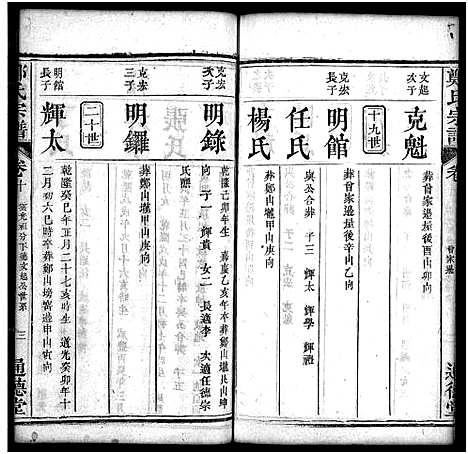 鄭氏宗譜
文起次子
克魁
葬曾家邊屋後酉山卯向
十九世
克宏長子
明館
葬曾家邊屋後辛山乙向
任氏
與公合葬 子三 輝太 輝學 輝禮
楊氏
葬鄭山壠甲山庚向
克宏次子
明錄
乾隆己卯年生 嘉慶乙亥年卒 葬鄭山壠艮山坤
向 子一 輝貴 女二 長適李 次適任德宗
氏
克宏三子
明鑼
葬鄭山壠甲山庚向
二十世
明館長子
輝太
乾隆癸巳年正月二十七亥時生 道光癸卯年十
二月初六巳時卒葬鄭山塝窖邊申山寅向
鄭氏宗譜
卷十
三
通德堂